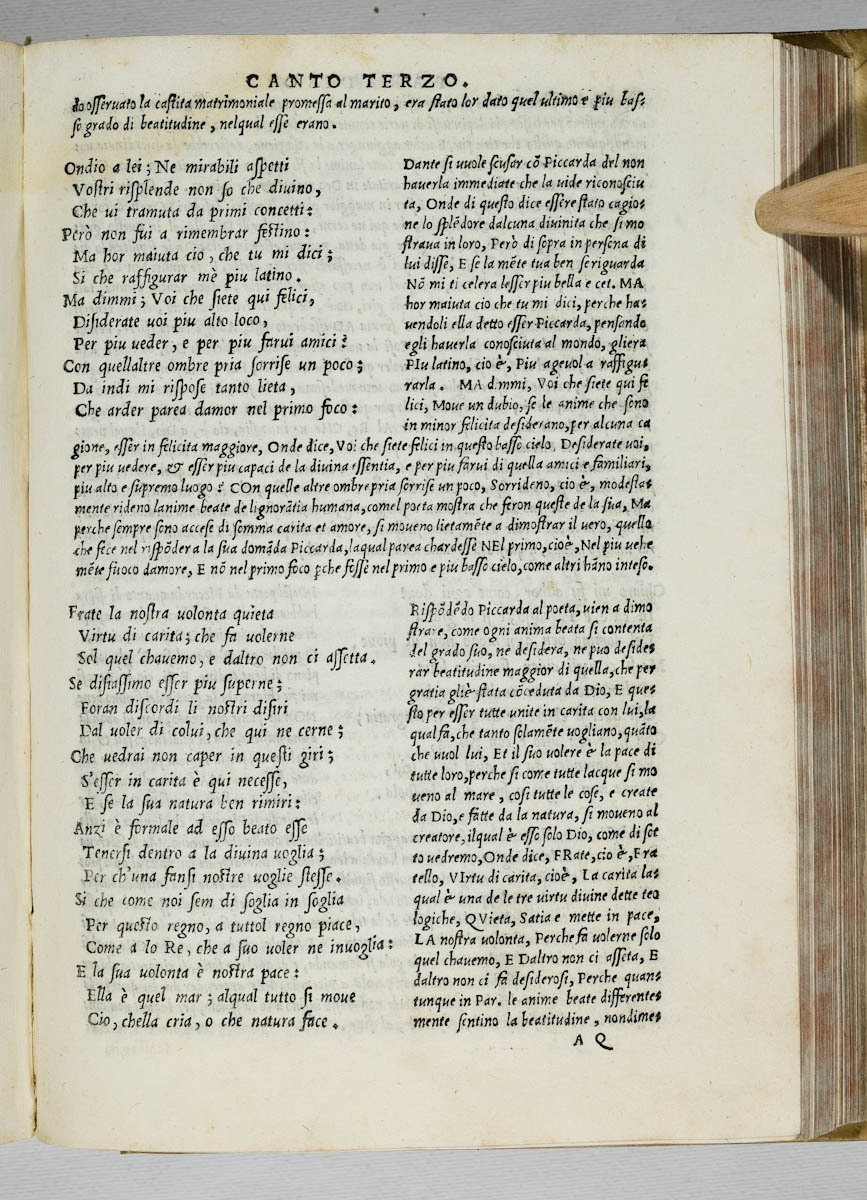 CANTO TERZO.
do osseruato la castita matrimoniale promessa al marito, era stato lor dato quel ultimo e piu bas-
so grado di beatitudine, nelqual esse erano.
Ondio a lei; Ne mirabili aspetti
Vostri risplende non so che diuino,
Che ui tramuta da primi concetti:
Però non fui a rimembrar festino:
Ma hor maiuta cio, che tu mi dici;
Si che raffigurar mè piu latino.
Ma dimmi; Voi che siete qui felici,
Disiderate uoi piu alto loco,
Per piu ueder, e per piu farui amici?
Con quellaltre ombre pria sorrise un poco;
Da indi mi rispose tanto lieta,
Che arder parea damor nel primo foco:
Dante si uuole scusar cō Piccarda del non
hauerla immediate che la uide riconosciu
ta, Onde di questo dice essere stato cagio-
ne lo splēdore dalcuna diuinita che si mo
straua in loro, Però di sopra in persona di
lui disse, E se la mēte tua ben seriguarda
Nō mi ti celera lesser piu bella e cet. MA
hor maiuta cio che tu mi dici, perche ha-
uendoli ella detto esser Piccarda, pensando
egli hauerla conosciuta al mondo, gliera
PIu latino, cio è, Piu ageuol a raffigu-
rarla. MA dimmi, Voi che siete qui fe
lici, Moue un dubio, se le anime che sono
in minor felicita desiderano, per alcuna ca
gione, esser in felicita maggiore, Onde dice, Voi che siete felici in questo basso cielo, Desiderate uoi,
per piu uedere, & esser piu capaci de la diuina essentia, e per piu farui di quella amici e familiari,
piu alto e supremo luogo? COn quelle altre ombre pria sorrise un poco, Sorrideno, cio è, modesta-
mente rideno lanime beate de lignorātia humana, comel poeta mostra che feron queste de la sua, Ma
perche sempre sono accese di somma carita et amore, si moueno lietamēte a dimostrar il uero, quello
che fece nel rispōdera la sua domāda Piccarda, laqual parea chardesse NEl primo, cioè, Nel piu uehe
mēte fuoco damore, E nō nel primo foco ꝑche fosse nel primo e piu basso cielo, come altri hāno inteso.
Frate la nostra uolonta quieta
Virtu di carita; che fa uolerne
Sol quel chauemo, e daltro non ci assetta.
Se disiassimo esser piu superne;
Foran discordi li nostri disiri
Dal uoler di colui, che qui ne cerne;
Che uedrai non caper in questi giri;
S'esser in carita è qui necesse,
E se la sua natura ben rimiri:
Anzi è formale ad esso beato esse
Tenersi dentro a la diuina uoglia;
Per ch'una fansi nostre uoglie stesse.
Si che come noi sem di soglia in soglia
Per questo regno, a tuttol regno piace,
Come a lo Re, che a suo uoler ne inuoglia:
E la sua uolonta è nostra pace:
Ella è quel mar; alqual tutto si moue
Cio, chella cria, o che natura face.
Rispōdēdo Piccarda al poeta, uien a dimo
strare, come ogni anima beata si contenta
del grado suo, ne desidera, ne puo deside-
rar beatitudine maggior di quella, che per
gratia gliè stata cōceduta da Dio, E que-
sto per esser tutte unite in carita con lui, la
qual fa, che tanto solamēte uogliano, quāto
che uuol lui, Et il suo uolere è la pace di
tutte loro, perche si come tutte lacque si mo
ueno al mare, cosi tutte le cose, e create
da Dio, e fatte da la natura, si moueno al
creatore, ilqual è esso solo Dio, come di sot
to uedremo, Onde dice, FRate, cio è, Fra
tello, VIrtu di carita, cioè, La carita la-
qual è una de le tre uirtu diuine dette teo
logiche, QVieta, Satia e mette in pace,
LA nostra uolonta, Perche fa uolerne solo
quel chauemo, E Daltro non ci asseta, E
daltro non ci fa desiderosi, Perche quan-
tunque in Par. le anime beate differente-
mente sentino la beatitudine, nondime-
A Q